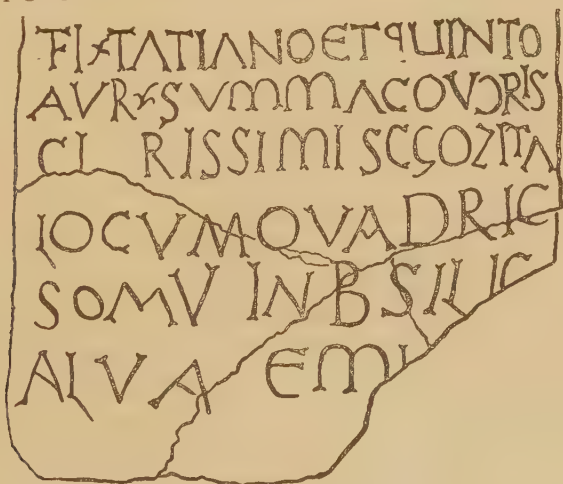 FL TATIANO ET QUINTO
AUR SUMMACO VC RIS
CL RISSIMIS
LOCVM QVADRIC
SOMV IN B SILIC
ALVA EMI